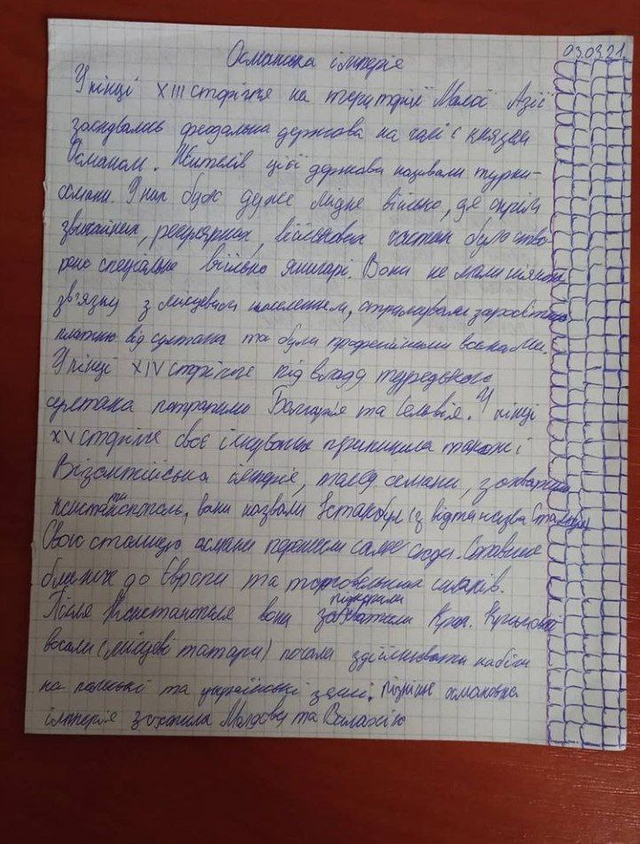 03.03.21
Османска імперія
У кінці XIII сторіччя на території Малої Азії
заснувалась феодальна держава на чалі с князем
Османом. Жителів цієї держави називали турки-
османи. У них було дуже міцне військо, де окрім
звичайних, регулярних, військових частин було ство
рено спеціальне військо яничарі. Вони не мали ніякого
зв'язку з місцевим населенням, отримували заробітну
платню від султана та були професійними воєнами.
У кінці XIV сторіччя під владу турецького
султана потрапило Болгарія та Сербія. У кінці
XV сторіччя своє існування припинила також і
Візантійська імперія, тавод османи, захвативши
Константинополь, вони назвали Істанбул (з відти назва Стамбул)
Свою столицю османи перенесли саме сюди. Ставши
ближче до Європи та торговельних шляхів.
Після Констанополя вони підкорили Крим. Кримські
васали (місцеві татари) почали здійснювати набіги
на польські та українські землі. Пізніше османська
імперія захопила Молдову та Валахію